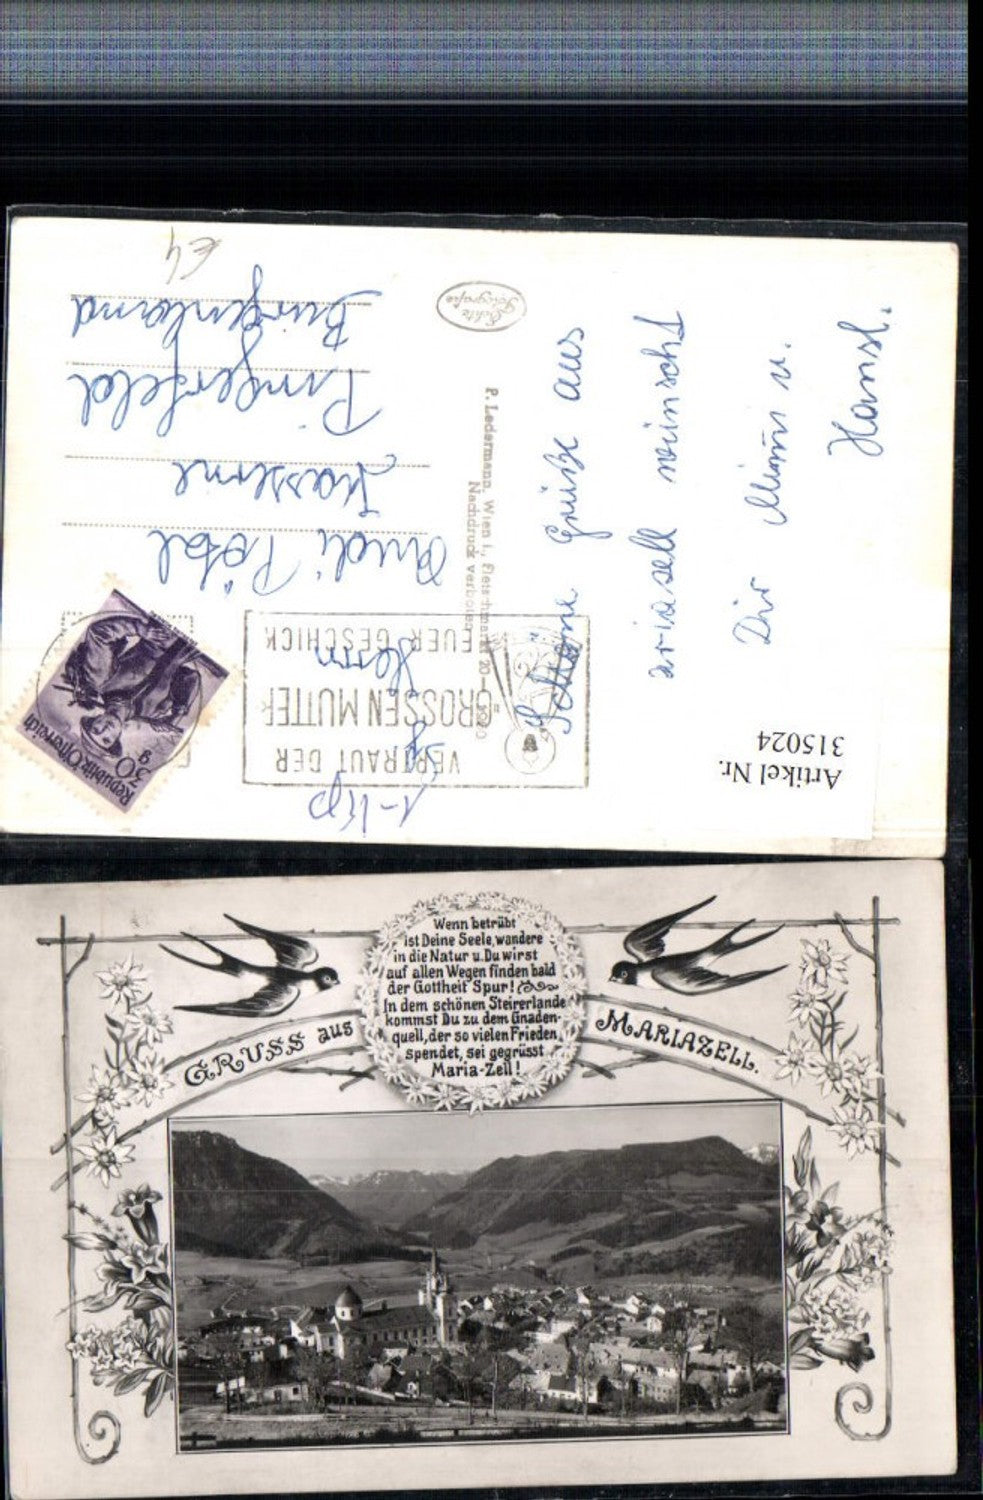 €4
Artikel Nr.
315024
Schöne Grüße aus
ariazell wünscht
Dir Mimi u.
Hansl.
Echte
Fotografie
P. Ledermann, Wien I., Fleischmarkt 20—
Nachdruck verboten
VERTRAUT DER
GROSSEN MUTTER
EUER GESCHICK
Republik Österreich
30 g
Herrn
Rudi
Kaserne
Pinkafeld
Burgenland
GRUSS aus MARIAZELL.
Wenn betrübt
ist Deine Seele, wandere
in die Natur u. Du wirst
auf allen Wegen finden bald
der Gottheit Spur!
In dem schönen Steirerlande
kommst Du zu dem Gnaden-
quell, der so vielen Frieden
spendet, sei gegrüsst
Maria-Zell!